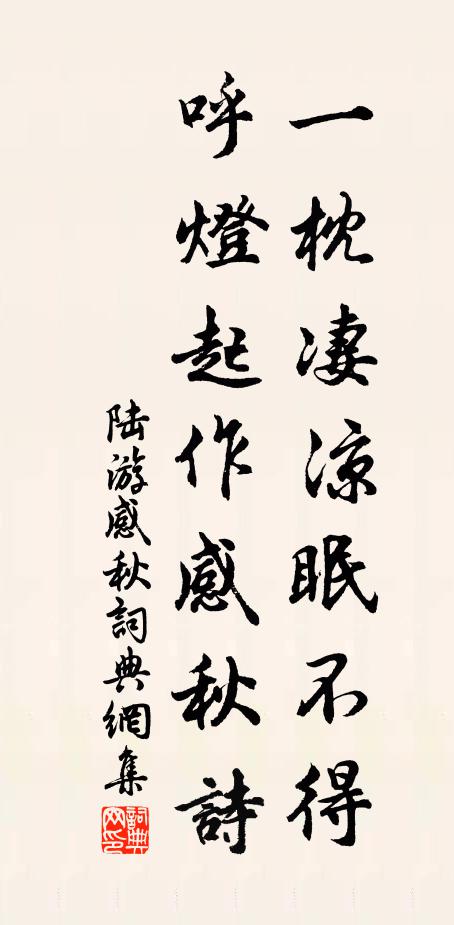 一枕淒涼眠不得
呼燈起作感秋詩
陆游感秋詞典網集
詞典
网印